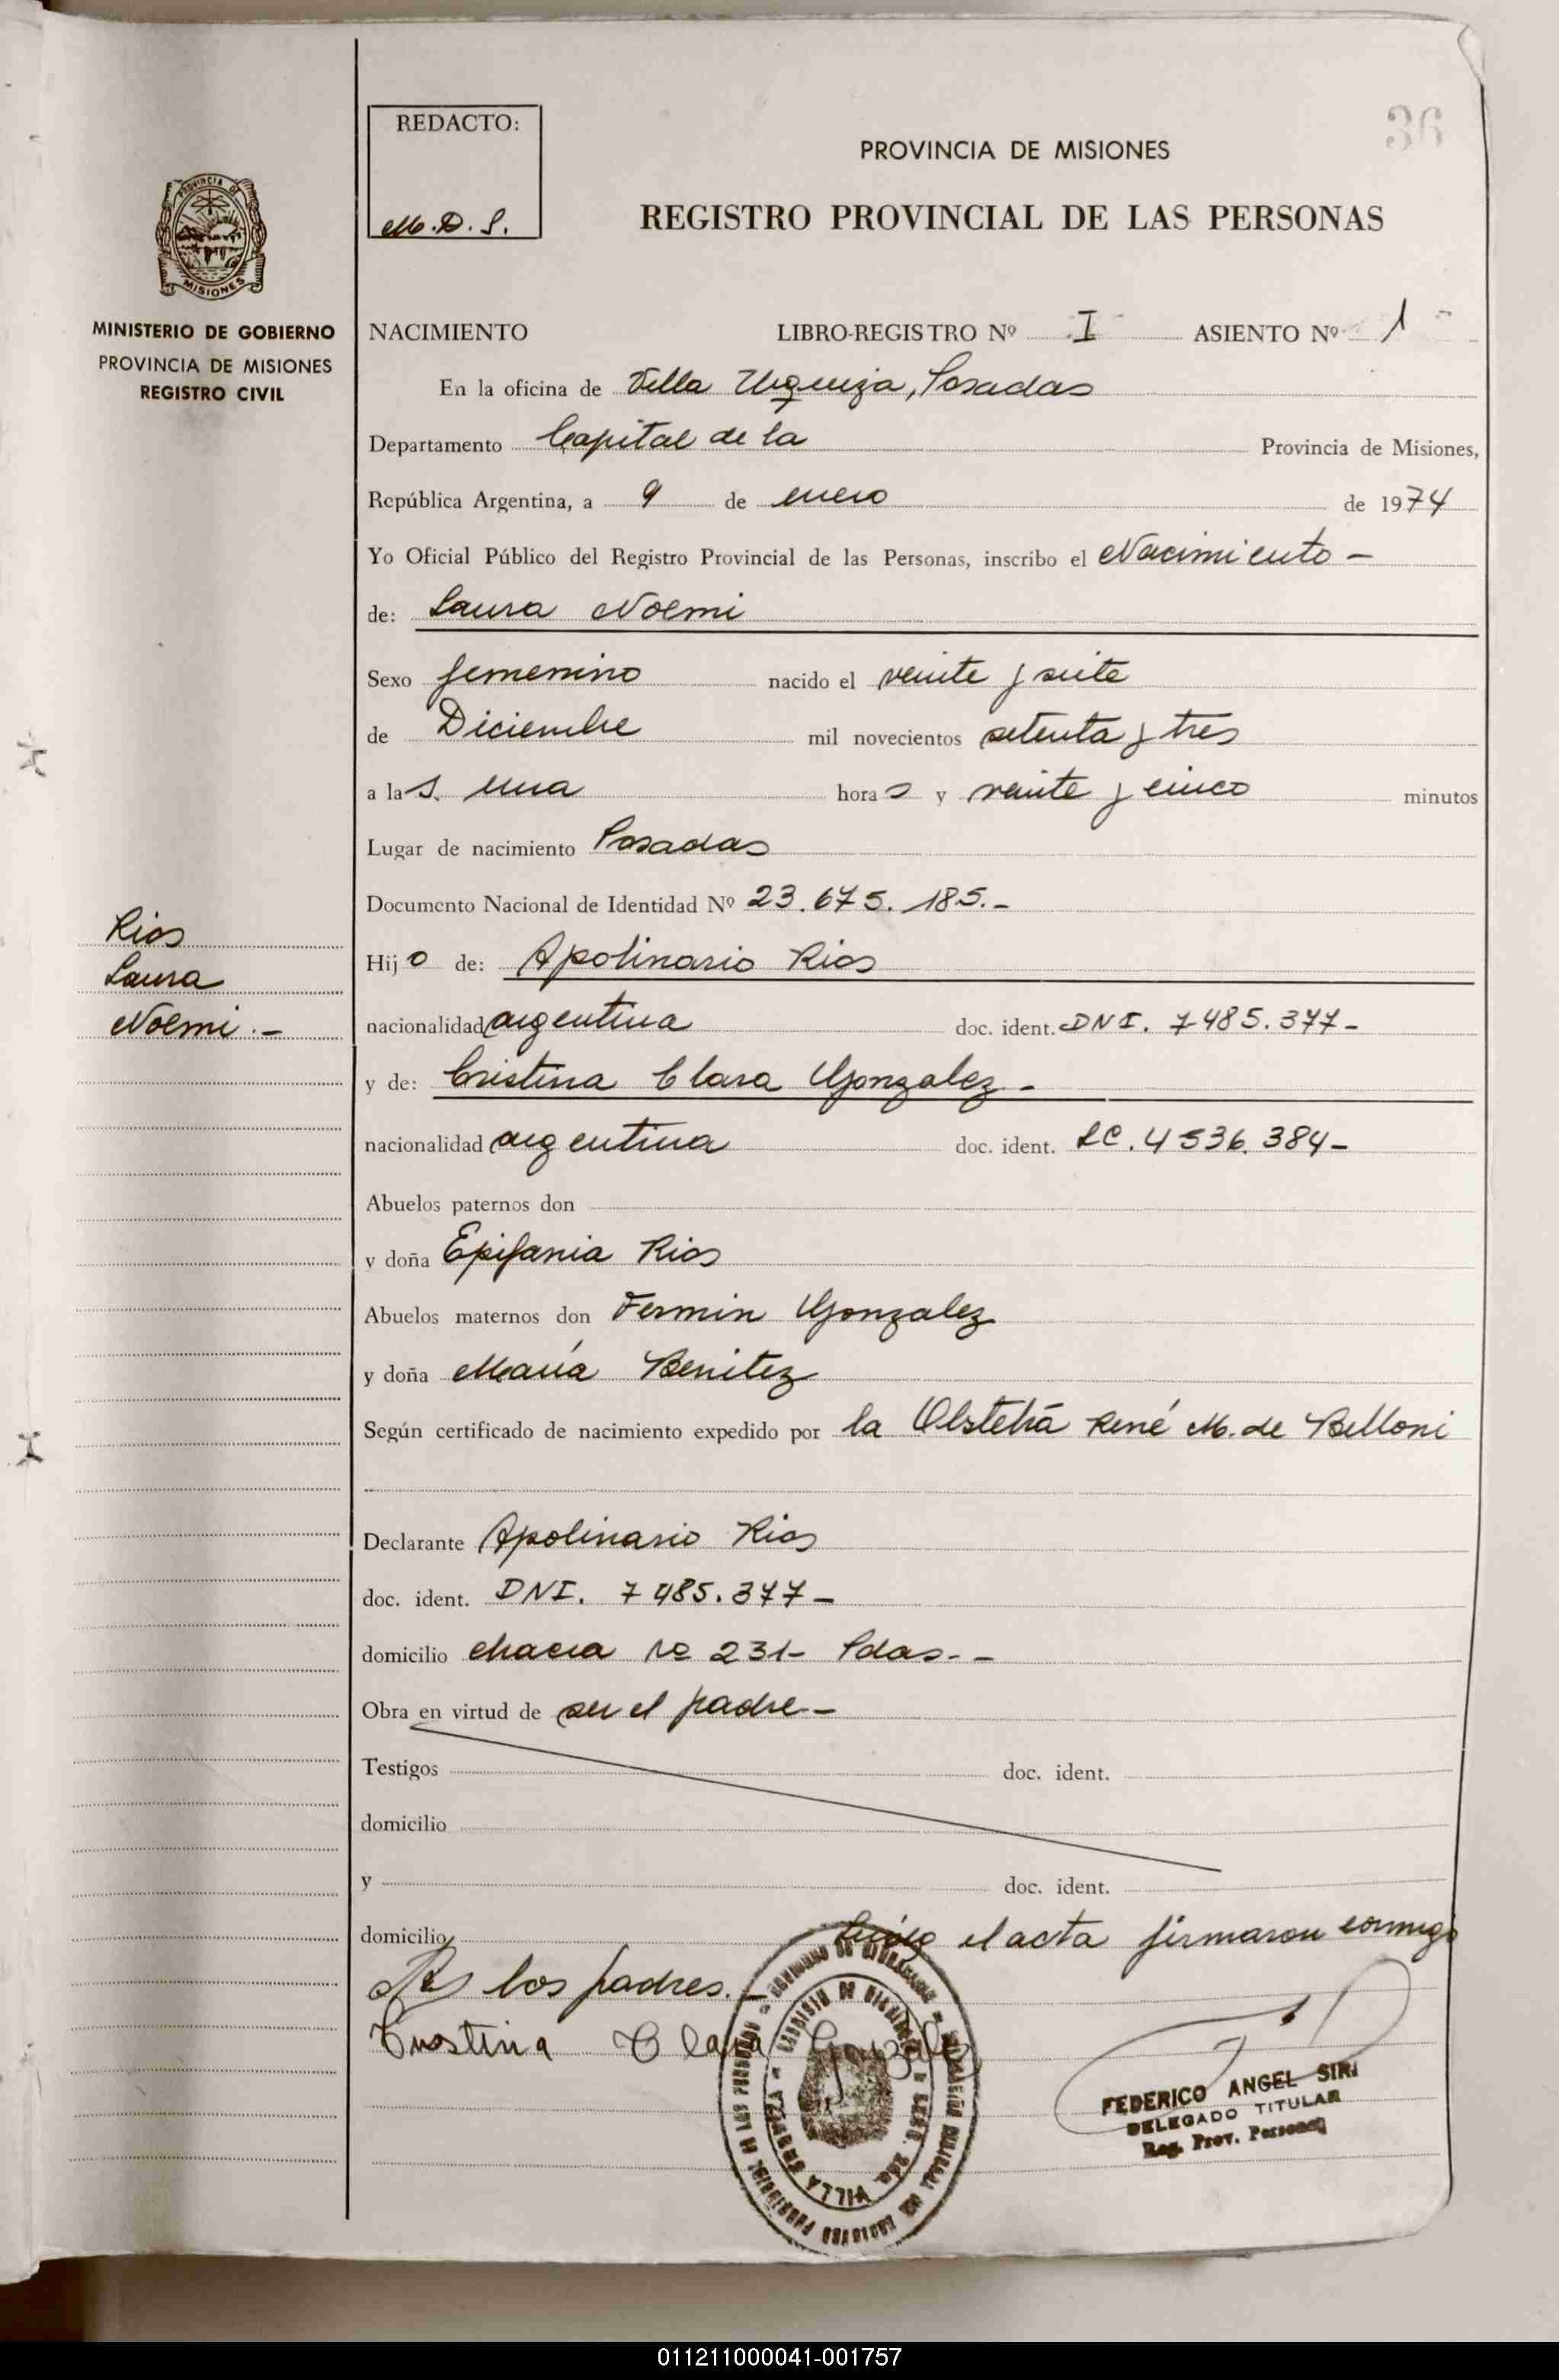 36
REDACTO:
M.D.S.
PROVINCIA DE MISIONES
REGISTRO PROVINCIAL DE LAS PERSONAS
PROVINCIA DE
MISIONES
MINISTERIO DE GOBIERNO
PROVINCIA DE MISIONES
REGISTRO CIVIL
NACIMIENTO LIBRO-REGISTRO Nº I ASIENTO Nº 1
En la oficina de Villa Urquiza, Posadas
Departamento Capital de la Provincia de Misiones,
República Argentina, a 9 de enero de 1974
Yo Oficial Público del Registro Provincial de las Personas, inscribo el Nacimiento -
de: Laura Noemi
Sexo femenino nacido el veinte y siete
de Diciembre mil novecientos setenta y tres
a las una horas y veinte y cinco minutos
Lugar de nacimiento Posadas
Documento Nacional de Identidad Nº 23.675.185.-
Rios
Laura
Noemi.-
Hijo de: Apolinario Rios
nacionalidad argentina doc. ident. DNI. 7485.377-
y de: Cristina Clara Gonzalez-
nacionalidad argentina doc. ident. LC. 4536.384-
Abuelos paternos don
y doña Epifania Rios
Abuelos maternos don Fermin Gonzalez
y doña María Benitez
Según certificado de nacimiento expedido por la René M. de Belloni
Declarante Apolinario Rios
doc. ident. DNI. 7485.377-
domicilio chacra Nº 231- Pdas.-
Obra en virtud de ser el padre-
Testigos doc. ident.
domicilio
y doc. ident.
domicilio el acta firmaron conmigo
los padres.-
Cristina Clara Gonzalez
VILLA URQUIZA
FEDERICO ANGEL SIRI
DELEGADO TITULAR
Reg. Prov. Personas
011211000041-001757